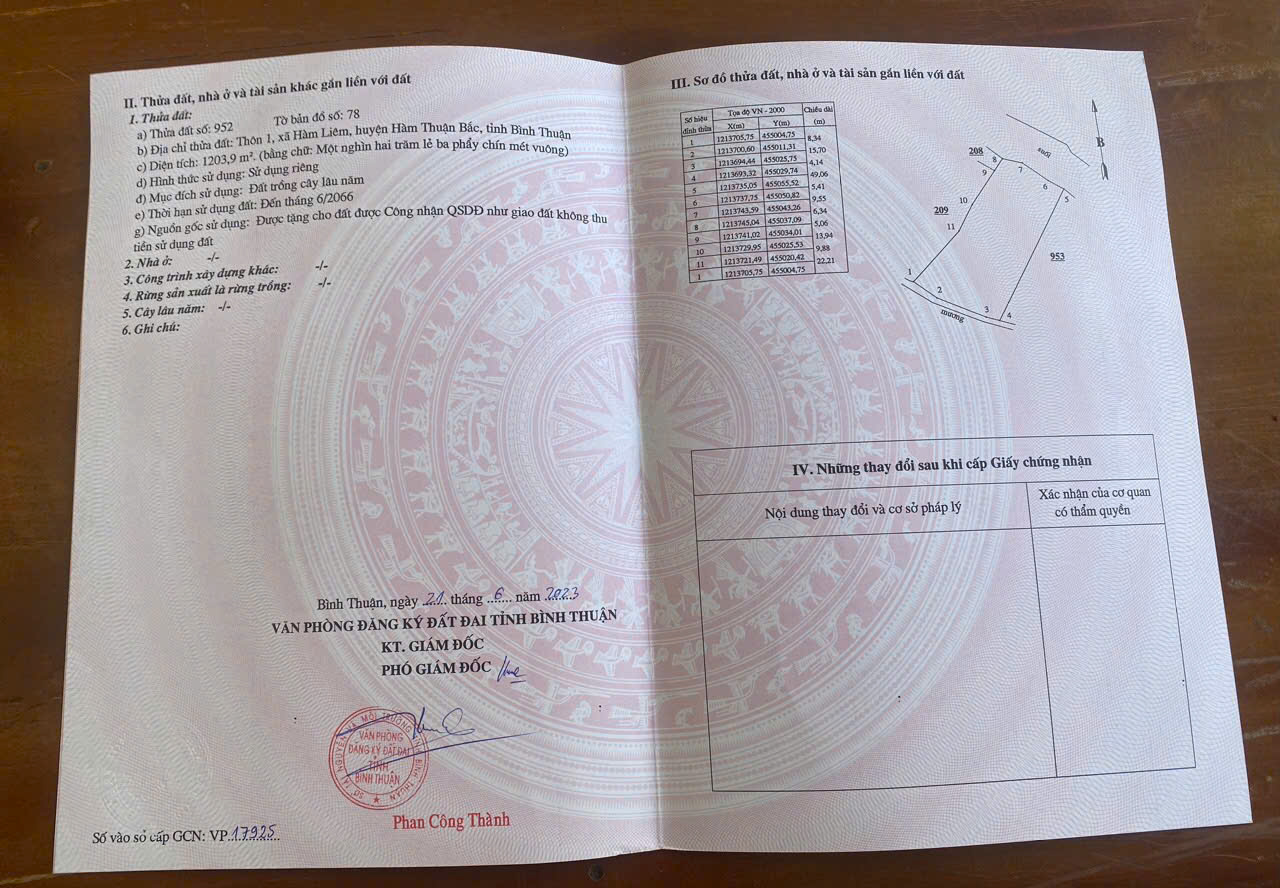 II. Thửa đất, nhà ở và tài sản khác gắn liền với đất
1. Thửa đất:
a) Thửa đất số: 952 Tờ bản đồ số: 78
b) Địa chỉ thửa đất: Thôn 1, xã Hàm Liêm, huyện Hàm Thuận Bắc, tỉnh Bình Thuận
c) Diện tích: 1203,9 m². (bằng chữ: Một nghìn hai trăm lẻ ba phẩy chín mét vuông)
d) Hình thức sử dụng: Sử dụng riêng
đ) Mục đích sử dụng: Đất trồng cây lâu năm
e) Thời hạn sử dụng đất: Đến tháng 6/2066
g) Nguồn gốc sử dụng: Được tặng cho đất được Công nhận QSDĐ như giao đất không thu
tiền sử dụng đất
2. Nhà ở: -/-
3. Công trình xây dựng khác: -/-
4. Rừng sản xuất là rừng trồng: -/-
5. Cây lâu năm: -/-
6. Ghi chú:
Bình Thuận, ngày 21 tháng 6 năm 2023
VĂN PHÒNG ĐĂNG KÝ ĐẤT ĐAI TỈNH BÌNH THUẬN
KT. GIÁM ĐỐC
PHÓ GIÁM ĐỐC
SỞ TÀI NGUYÊN VÀ MÔI TRƯỜNG TỈNH BÌNH THUẬN
VĂN PHÒNG
ĐĂNG KÝ ĐẤT ĐAI
TỈNH
BÌNH THUẬN
Phan Công Thành
Số vào sổ cấp GCN: VP 17925
III. Sơ đồ thửa đất, nhà ở và tài sản gắn liền với đất
Số hiệu đỉnh thửa Tọa độ VN - 2000 Chiều dài (m)
X(m) Y(m)
1 1213705,75 455004,75
8,34
2 1213700,60 455011,31
15,70
3 1213694,44 455025,75
4,14
4 1213693,32 455029,74
49,06
5 1213735,05 455055,52
5,41
6 1213737,75 455050,82
9,55
7 1213743,59 455043,26
6,34
8 1213745,04 455037,09
5,06
9 1213741,02 455034,01
13,94
10 1213729,95 455025,53
9,88
11 1213721,49 455020,42
22,21
1 1213705,75 455004,75
B
suối
208
8
7
9
6
5
10
209
11
953
1
2
3
4
mương
IV. Những thay đổi sau khi cấp Giấy chứng nhận
Nội dung thay đổi và cơ sở pháp lý
Xác nhận của cơ quan
có thẩm quyền